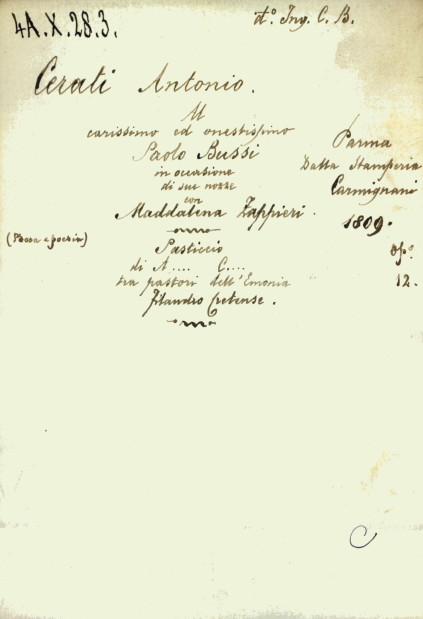 4A.X.28.3.
d.º Ing. C. B.
Cerati Antonio.
Al
carissimo ed onestissimo
Paolo Bussi
in occasione
di sue nozze
con
Maddalena Zappieri.
Pasticcio
di A.... C....
tra pastori dell'Emonia
Filandro Cretense.
(Prosa e poesia)
Parma
Dalla Stamperia
Carmignani
1809.
op.º
12.
C